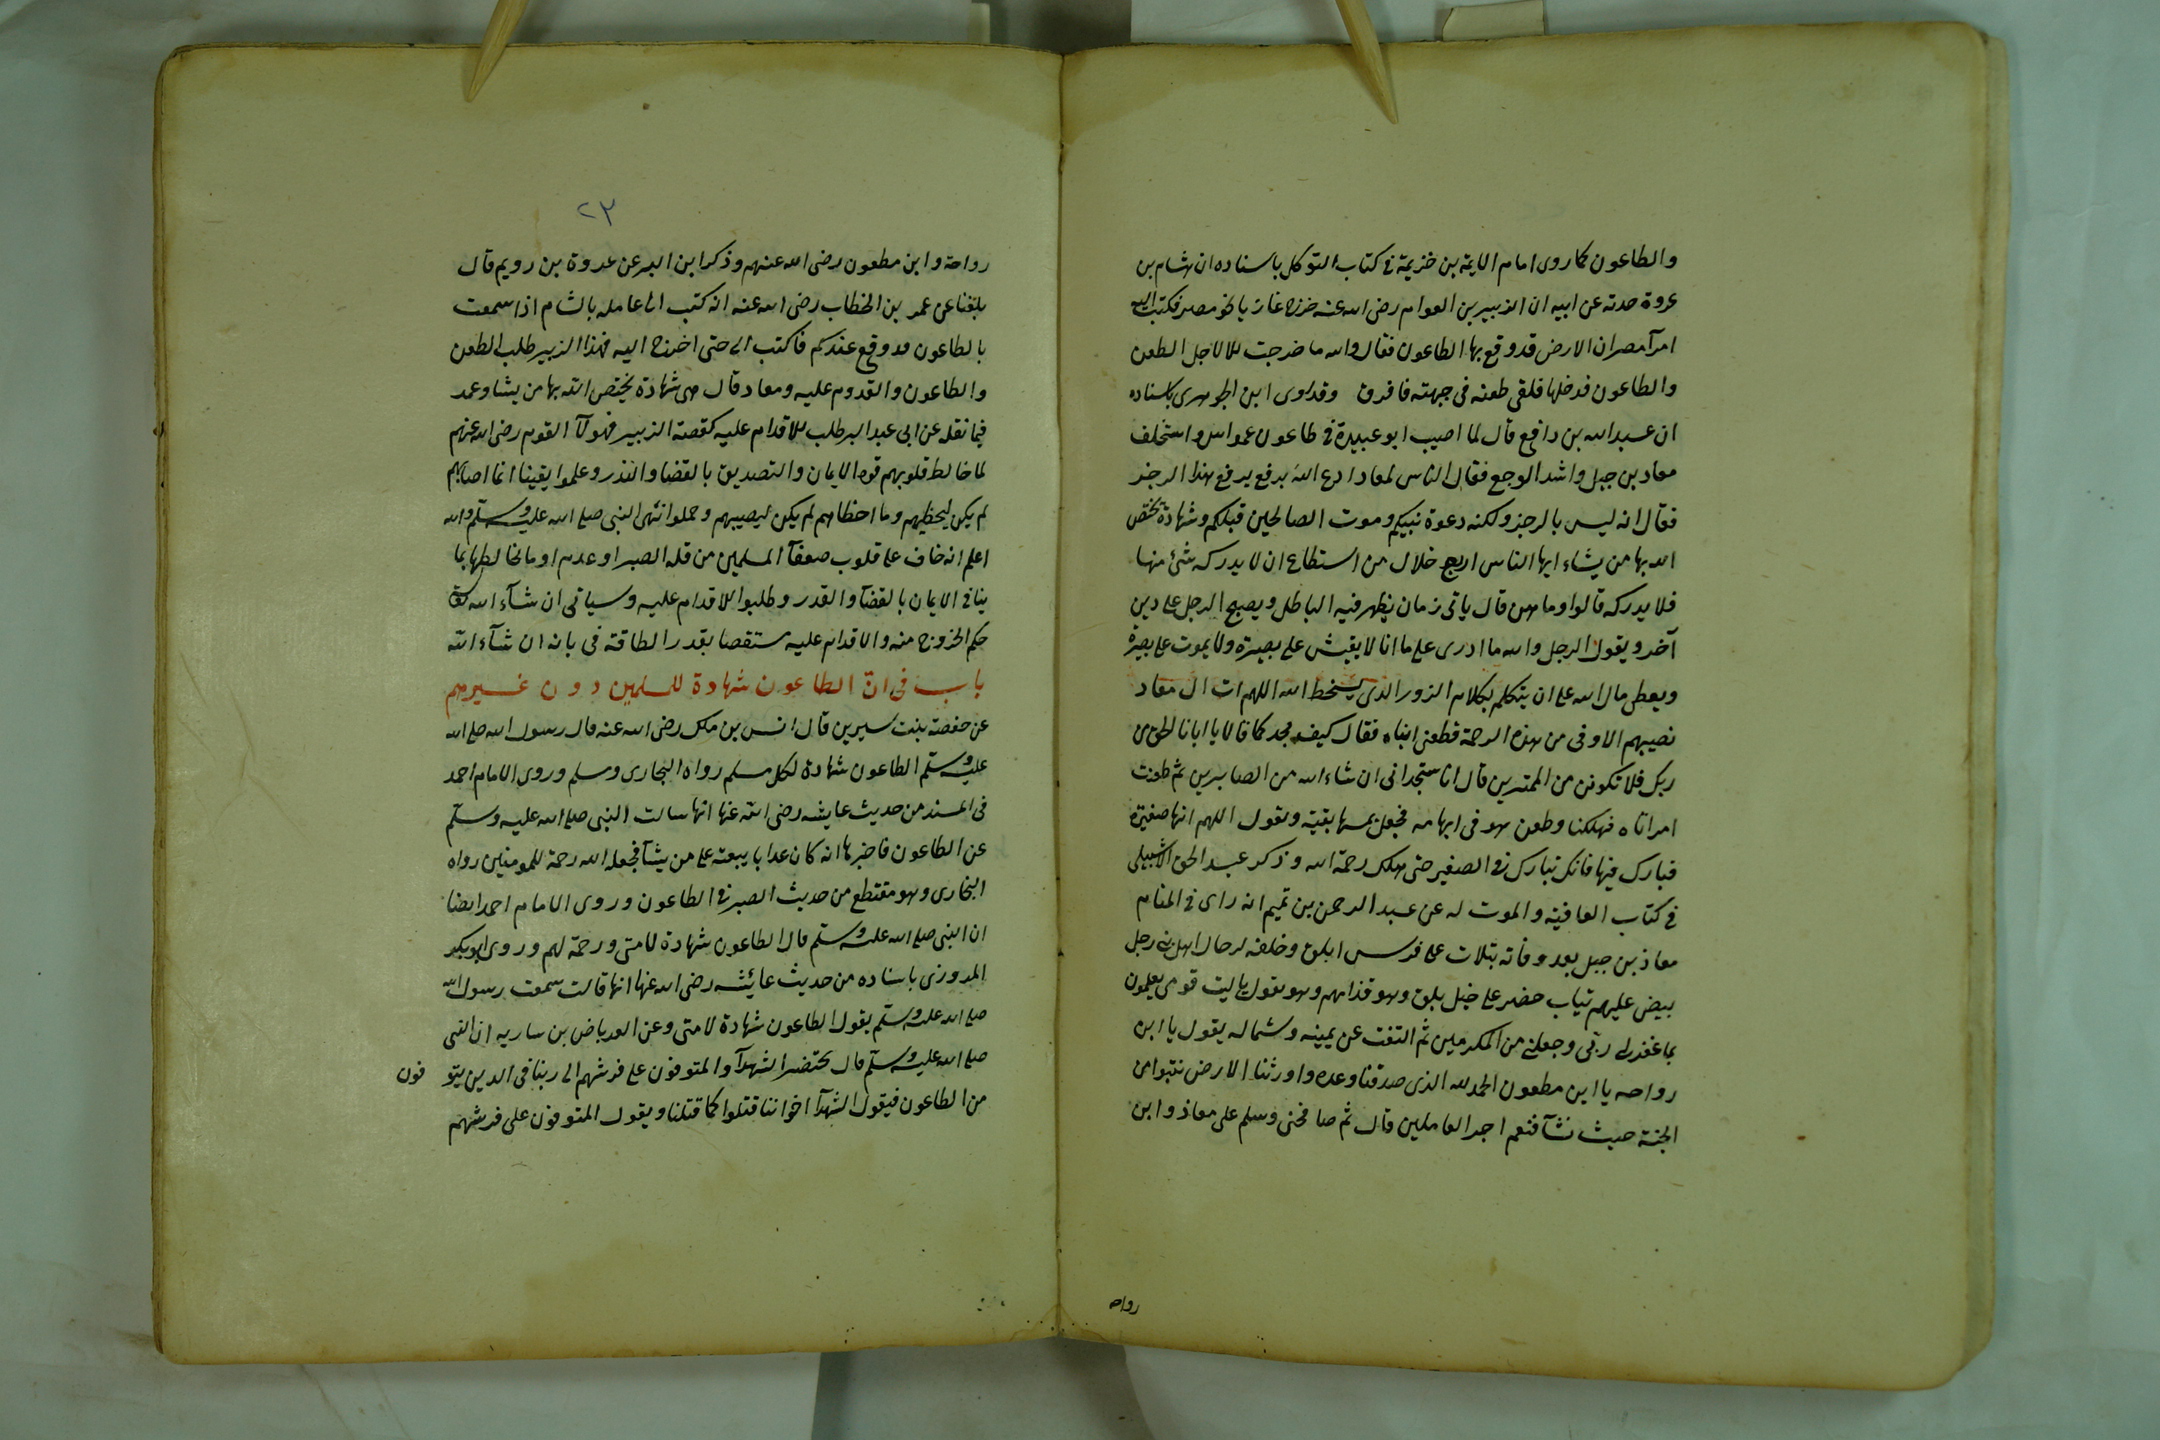 والطاعون كما روى امام الايمة بن خزيمة في كتاب التوكل باسناده ان هشام بن
عروة حدثه عن ابيه ان الزبير بن العوام رضى الله عنه خرج غازيا نحو مصر فكتب اليه
امرآ مصر ان الارض قد وقع بها الطاعون فقال والله ما خرجت الا لاجل الطعن
والطاعون فدخلها فلقى طعنه فى جبهته فافرق وقد روى ابن الجوهرى باسناده
ان عبد الله بن رافع قال لما اصيب ابو عبيدة في طاعون عمواس واستخلف
معاد بن جبل واشد الوجع فقال الناس لمعاد ادع الله يرفع هذا الرجز
فقال انه ليس بالرجز ولكنه دعوة نبيكم وموت الصالحين قبلكم وشهادة يختص
الله بها من يشاء ايها الناس اربع خلال من استطاع ان لا يدركه شئ منها
فلا يدركه قالوا وما هن قال ياتى زمان يظهر فيه الباطل ويصبح الرجل على دين
آخر ويقول الرجل والله ما ادرى على ما انا لا يعيش على بصيرة ولا يموت على بصيرة
ويعطى مال الله على ان يتكلم بكلام الزور الذى يسخط الله اللهم ات ال معاد
نصيبهم الاوفى من هذه الرحمة فطعن ابناه فقال كيف تجدكما قالا يا ابانا الحق من
ربك فلا تكونن من الممترين قال انا ستجدانى ان شاء الله من الصابرين ثم طعنت
امراتاه فهلكتا وطعن هو فى ابهامه فجعل يمسها بفيه ويقول اللهم انها صغيرة
فبارك فيها فانك تبارك في الصغير حتى هلك رحمة الله وذكر عبد الحق الاشبيلى
في كتاب العافية والموت له عن عبد الرحمن بن تميم انه راى في المنام
معاذ بن جبل بعد وفاته بثلاث على فرس ابلق وخلفه رجال
بيض عليهم ثياب خضر على خيل بلق وهو قدامهم وهو يقول ياليت قومى يعلمون
بما غفر لى ربى وجعلنى من المكرمين ثم التفت عن يمينه وشماله يقول يا ابن
رواحه يا ابن مطعون الحمد لله الذى صدقنا وعده واورثنا الارض نتبوا من
الجنة حيث نشآ فنعم اجر العاملين قال ثم صافحنى وسلم على معاذ وابن
رواحه
٢٣
رواحة وابن مطعون رضى الله عنهم وذكر ابن البر عن عروة بن رويم قال
بلغنا عن عمر بن الخطاب رضى الله عنه انه كتب الى عامله بالشام اذا سمعت
بالطاعون قد وقع عندكم فاكتب الى حتى اخرج اليه فهذا الزبير طلب الطعن
والطاعون والقدوم عليه ومعاد قال هى شهادة يختص الله بها من يشا وعمر
فيما نقل عن ابى عبد البر طلب للاقدام عليه كقصة الزبير فهولآ القوم رضى الله عنهم
لما خالط قلوبهم قوه الايمان والتصديق بالقضا والقدر وعلموا يقينا انما اصابهم
لم يكن ليخطيهم وما اخطاهم لم يكن ليصيبهم وحملوا نهى النبى صلى الله عليه وسلم والله
اعلم انه خاف على قلوب ضعفآ المسلمين من قله الصبر او عدم او ما يخالطها بما
ينافى الايمان بالقضآ والقدر وطلبوا الاقدام عليه وسياتى ان شآء الله تعالى
حكم الخروج منه والاقدام عليه مستقصا بقدر الطاقة فى بابه ان شآء الله
باب فى ان الطاعون شهادة للمسلمين دون غيرهم
عن حفصة بنت سيرين قال انس بن ملك رضى الله عنه قال رسول الله صلى الله
عليه وسلم الطاعون شهادة لكل مسلم رواه البخارى ومسلم وروى الامام احمد
فى المسند من حديث عايشه رضى الله عنها انها سالت النبى صلى الله عليه وسلم
عن الطاعون فاخبرها انه كان عدابا يبعثه على من يشآ فجعله الله رحمة للمومنين رواه
البخارى وهو مقتطع من حديث الصبر في الطاعون وروى الامام احمد ايضا
ان النبى صلى الله عليه وسلم قال الطاعون شهادة لامتى ورحمة لهم وروى ابو بكر
المروزى باسناده من حديث عائشه رضى الله عنها انها قالت سمعت رسول الله
صلى الله عليه وسلم يقول الطاعون شهادة لامتى وعن العرباض بن ساريه ان النبى
صلى الله عليه وسلم قال يختصم الشهدآ والمتوفون على فرشهم الى ربنا فى الدين يتو
فون
من الطاعون فيقول الشهدآ اخواننا قتلوا كما قتلنا ويقول المتوفون على فرشهم